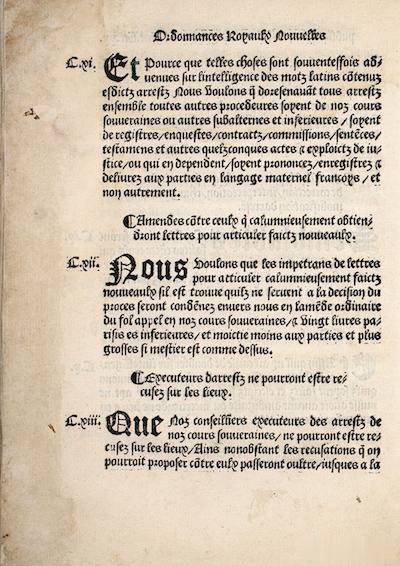 Ordonnances Royaulx Nouvelles
C.xi. Et Pource que telles choses sont souuenteffois ad-
uenues sur lintelligence des motz latins cõtenuz
esdictz arrestz Nous Voulons q̃ doresenauãt tous arrestz
ensemble toutes autres procedeures soyent de noz cours
souueraines ou autres subalternes et inferieures / soyent
de registres / enquestes / contractz / commissions / sentẽces /
testamens et autres quelzconques actes & exploictz de iu-
stice / ou qui en dependent / soyent prononcez / enregistrez &
deliurez aux parties en langage maternel francoys / et
non autrement.
¶ Amendes cõtre ceulx q̃ calumnieusement obtien-
dront lettres pour articuler faictz nouueaulx.
C.xii. Nous Voulons que les impetrans de lettres
pour articuler calumnieusement faictz
nouueaulx sil est trouue quilz ne seruent a la decision du
proces seront condẽnez enuers nous en lamẽde ordinaire
du fol appel en noz cours souueraines / & Vingt liures pa-
risis es inferieures / et moictie moins aux parties et plus
grosses si mestier est comme dessus.
¶ Executeurs darrestz ne pourront estre re-
cusez sur les lieux.
C.xiii. Que Noz conseilliers executeurs des arrestz de
noz cours souueraines / ne pourront estre re-
cusez sur les lieux / Ains nonobstant les recusations q̃ on
pourroit proposer cõtre eulx passeront oultre / iusques a la